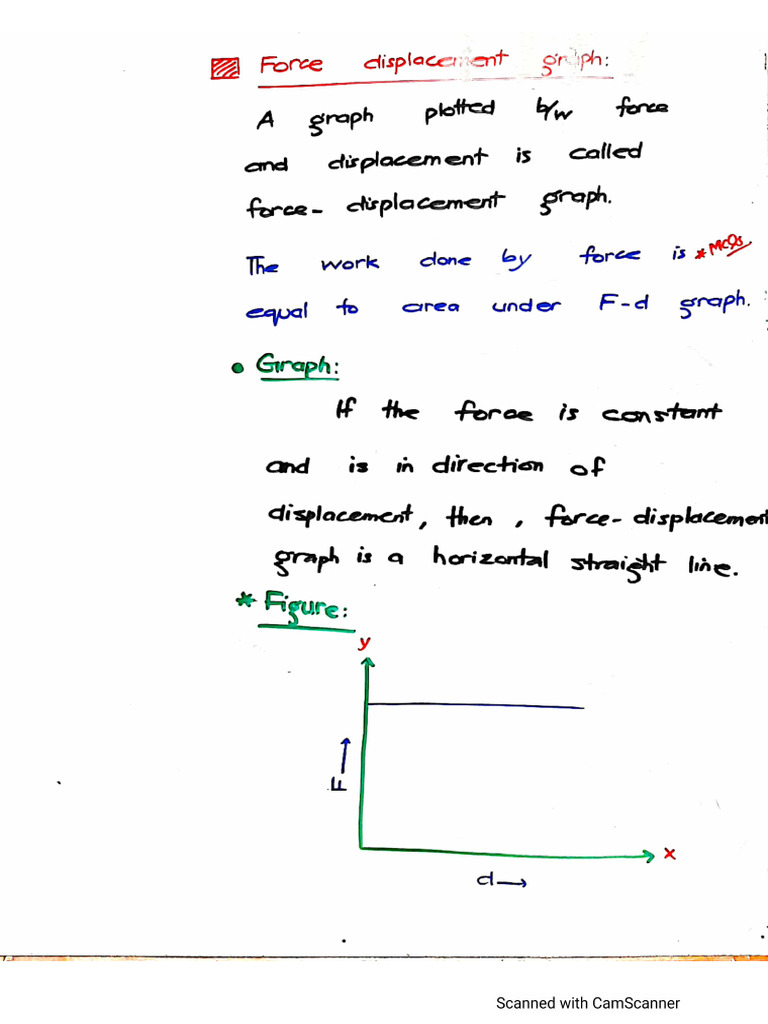 Force displacement graph:
A graph plotted b/w force
and displacement is called
force- displacement graph.
The work done by force is *MCQs
equal to area under F-d graph.
• Graph:
If the force is constant
and is in direction of
displacement, then, force-displacement
graph is a horizontal straight line.
* Figure:
y
F
x
d
Scanned with CamScanner